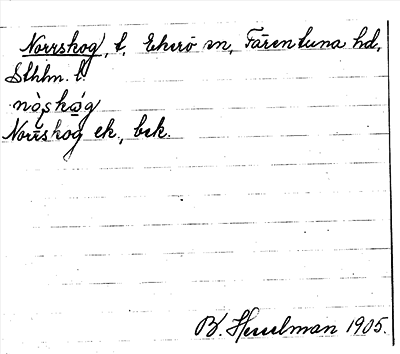 Norrskog, t, Ekerö sn, Färentuna hd,
Sthlm. l.
nòṣkó̱g
Norrskog ek., bsk.
B. Hesselman 1905.